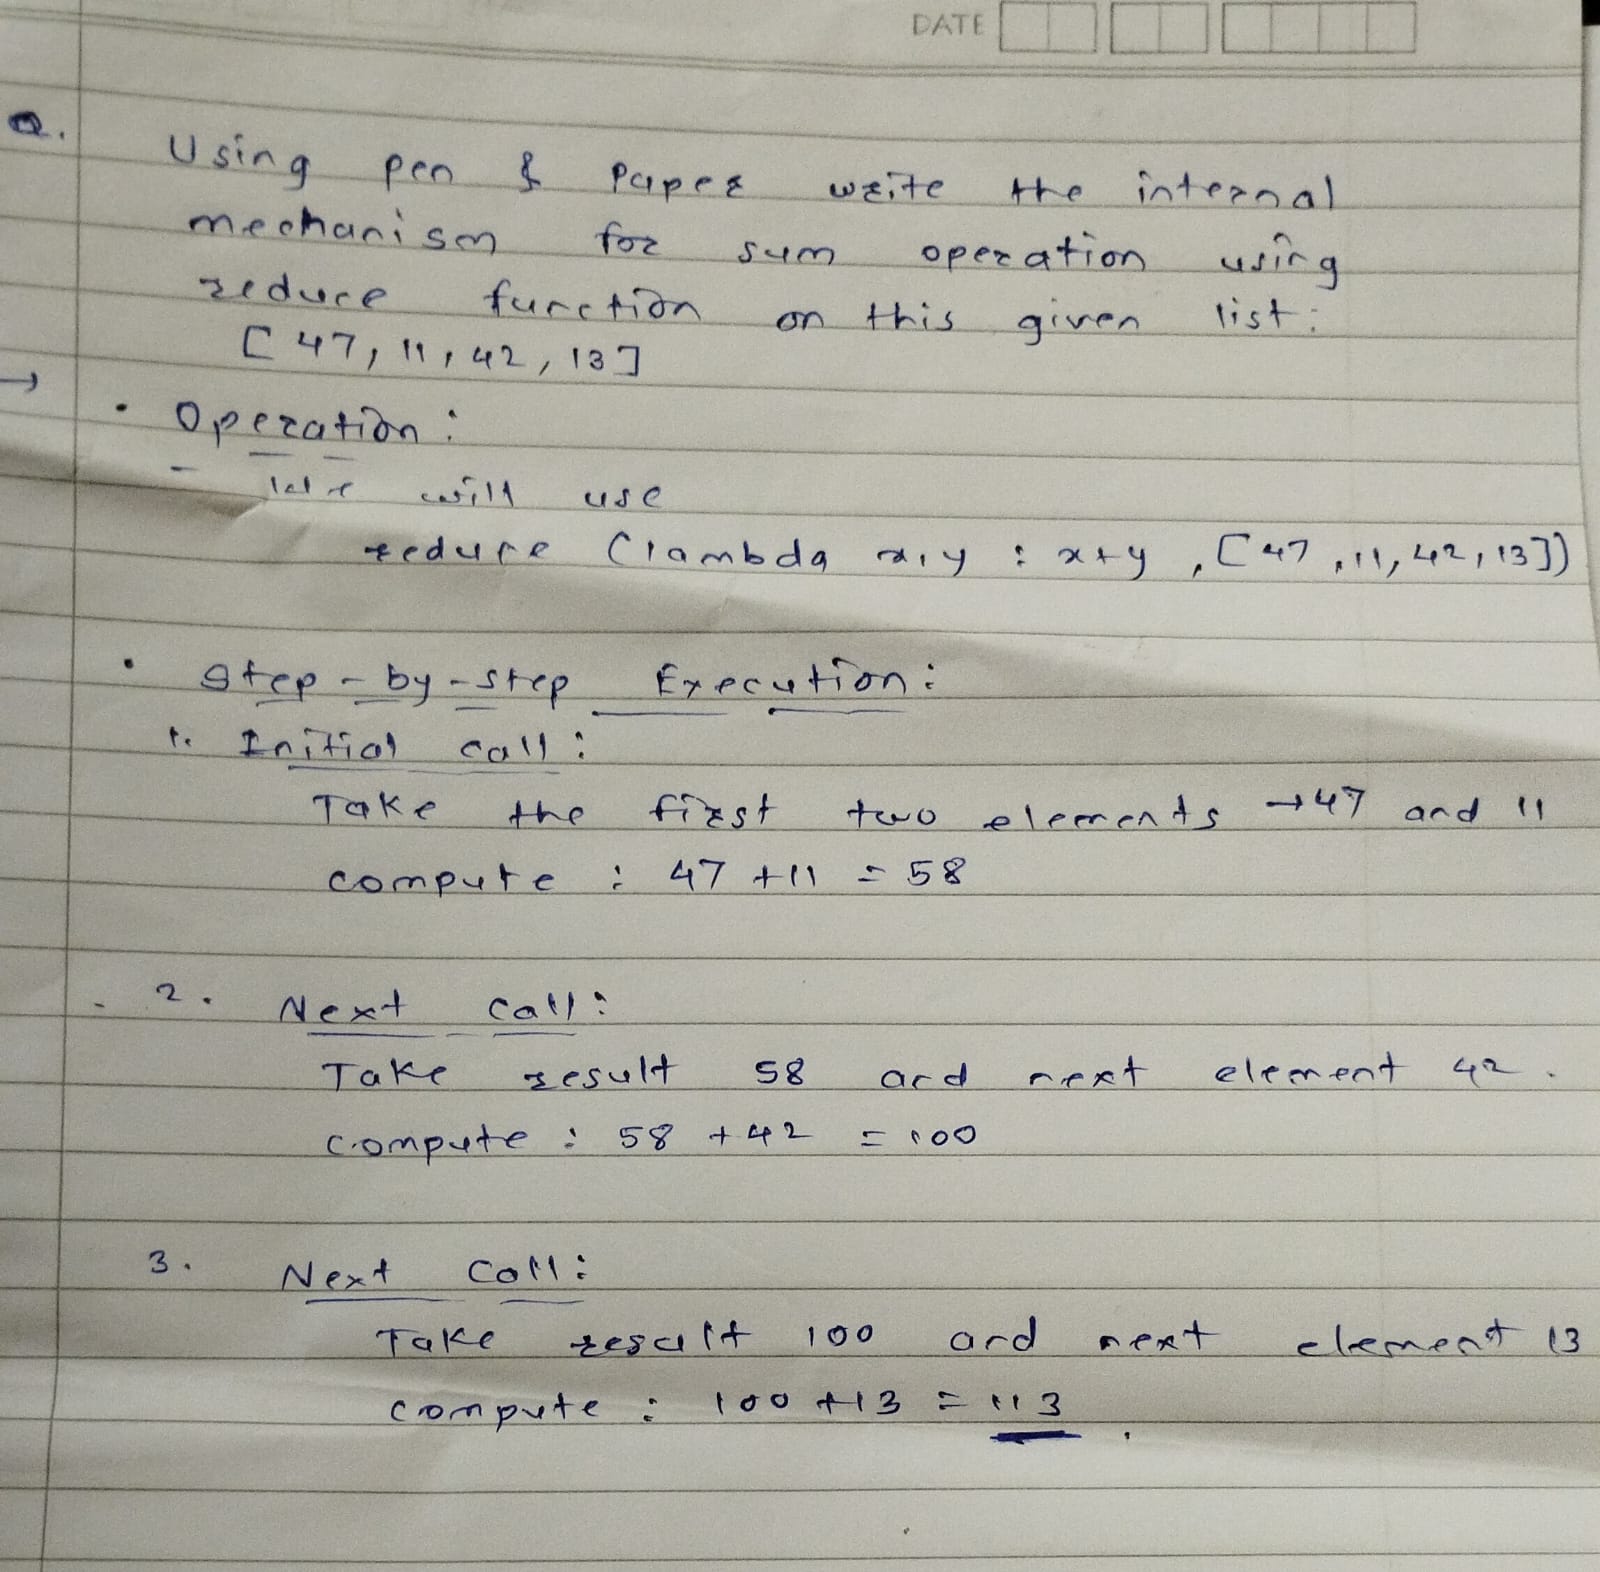 DATE
Q. Using pen & paper write the internal
mechanism for sum operation using
reduce function on this given list:
[47, 11, 42, 13]
→
• Operation:
- We will use
reduce (lambda x,y : x+y , [47, 11, 42, 13])
• Step-by-step Execution:
1. Initial call:
Take the first two elements → 47 and 11
compute : 47 + 11 = 58
2. Next call:
Take result 58 and next element 42.
compute : 58 + 42 = 100
3. Next Call:
Take result 100 and next element 13
compute : 100 + 13 = 113.